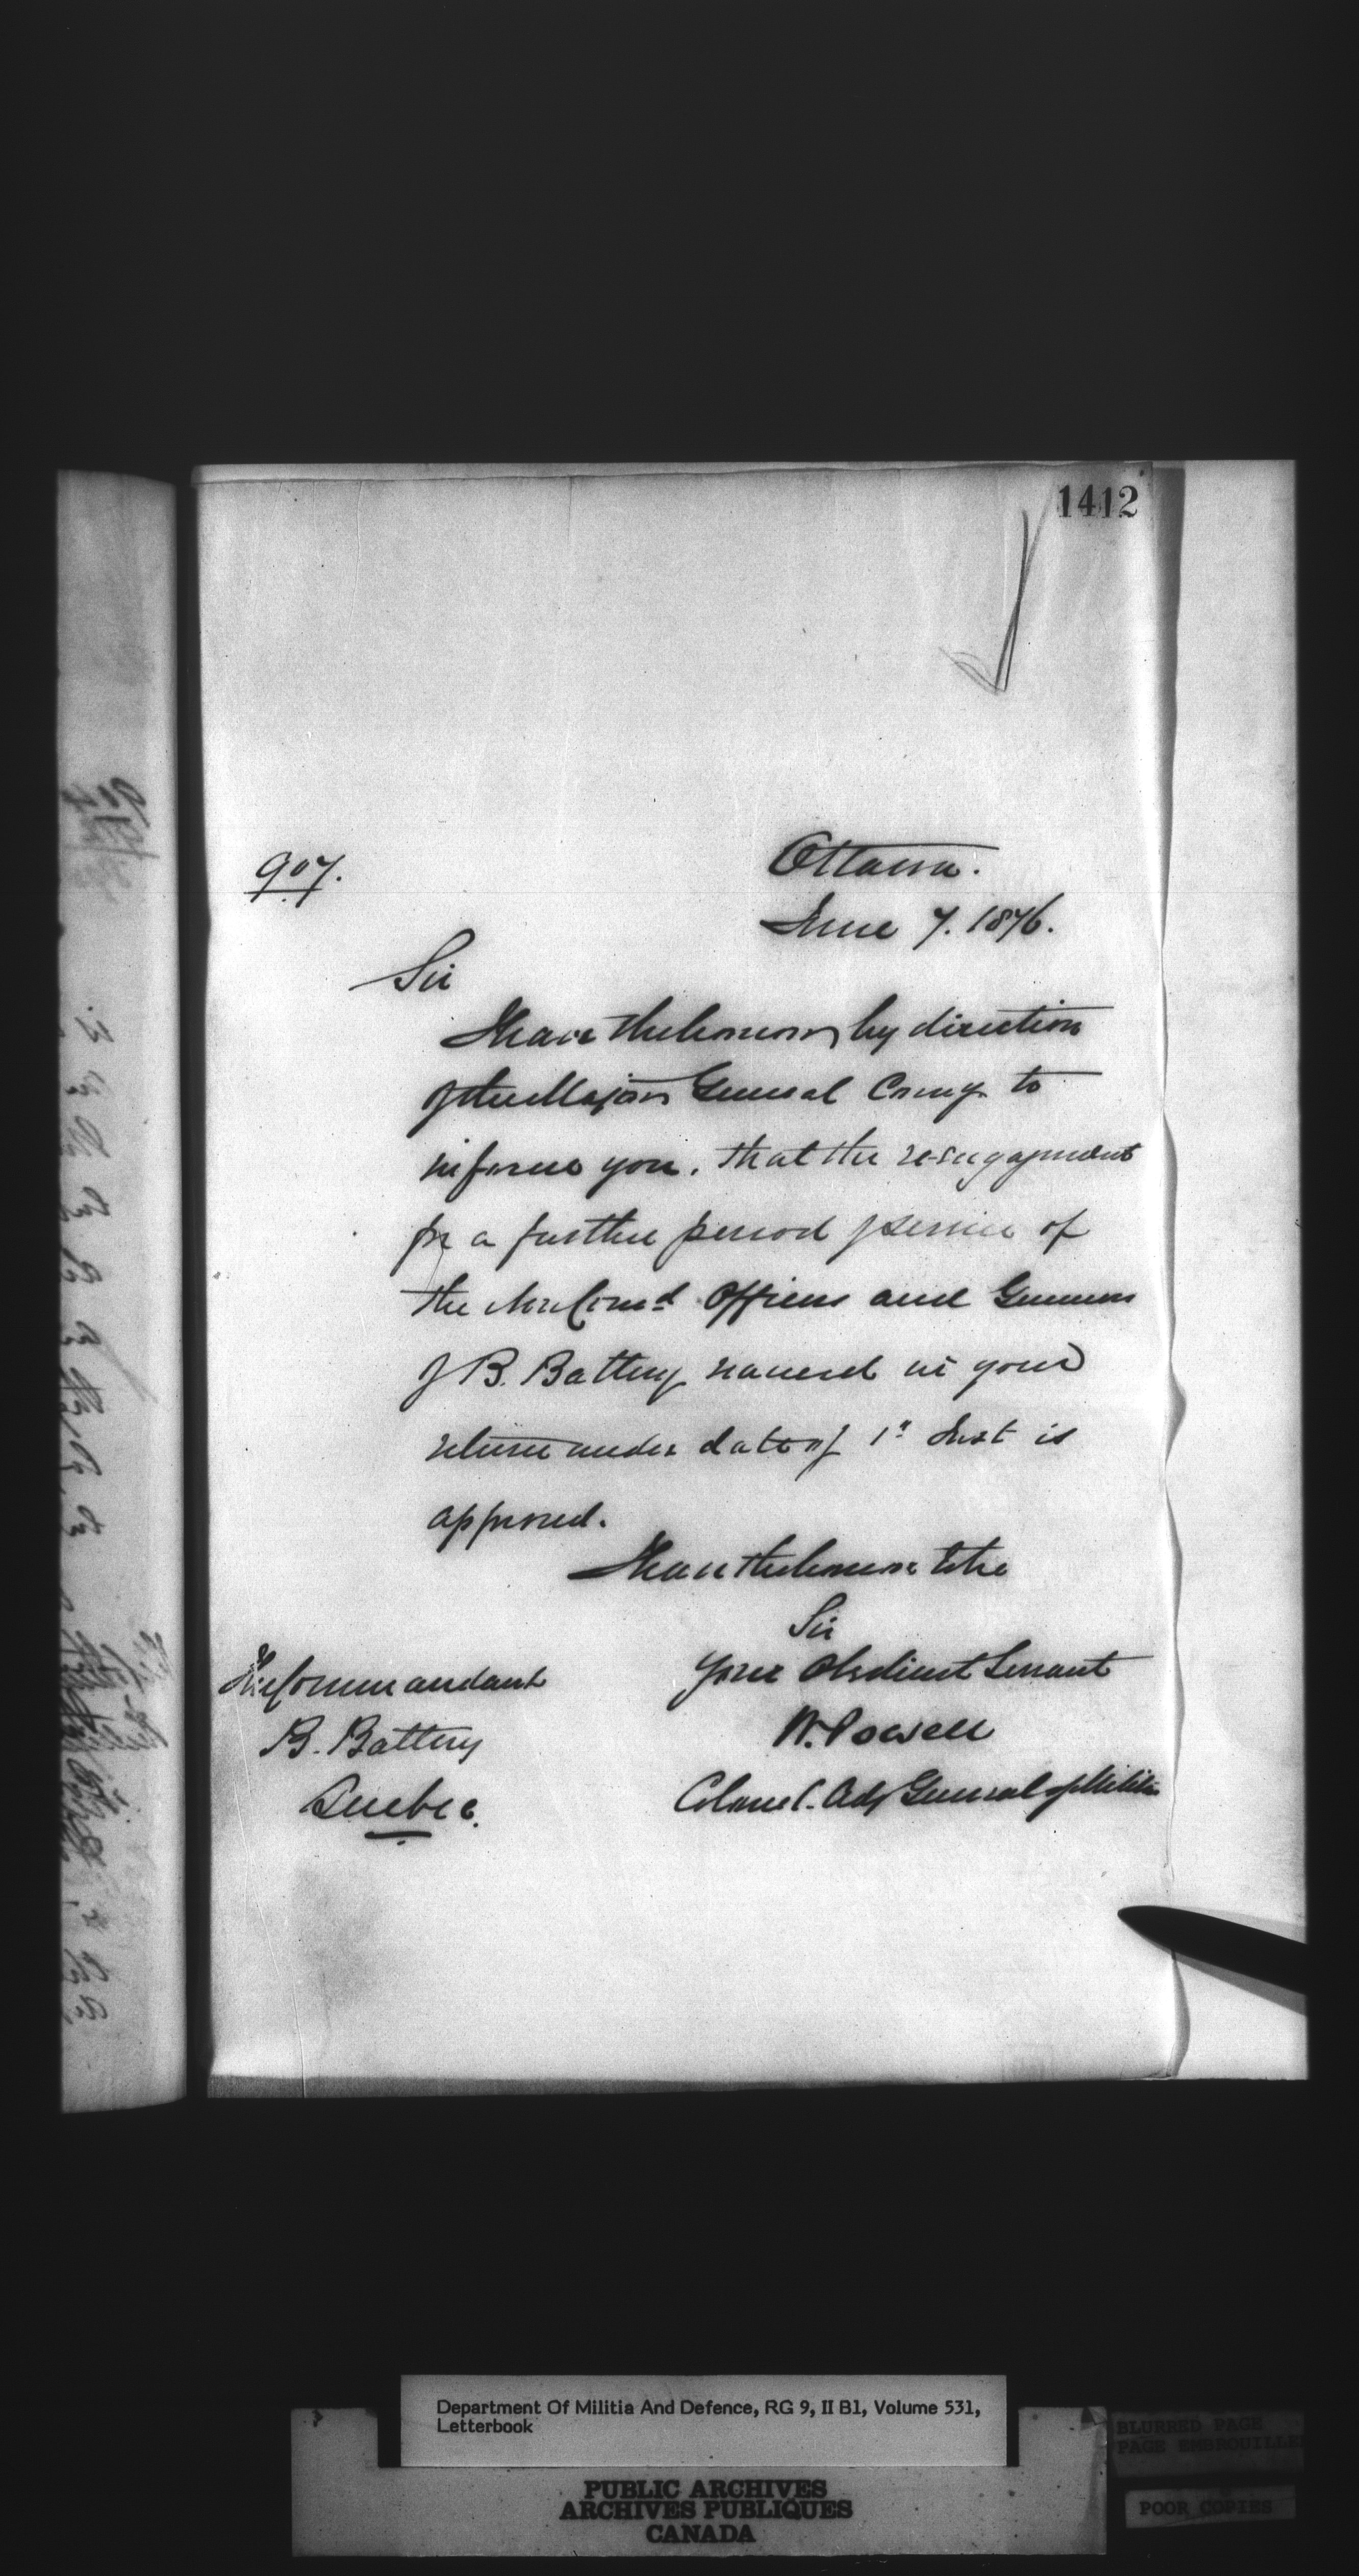 1412
907.
Ottawa.
June 7. 1876.
Sir
I have the honor, by direction
of the Major General Comg to
inform you, that the re-engagement
for a further period of service of
the Non Comd Officers and Gunners
of B. Battery named in your
return under date of 1st Inst is
approved.
I have the honor to be
Sir
Your Obedient Servant
W. Powell
Colonel. Adj General of Militia
The Commandant
B. Battery
Quebec.
Department Of Militia And Defence, RG 9, II B1, Volume 531,
Letterbook
PUBLIC ARCHIVES
ARCHIVES PUBLIQUES
CANADA
BLURRED PAGE
PAGE EMBROUILLEE
POOR COPIES